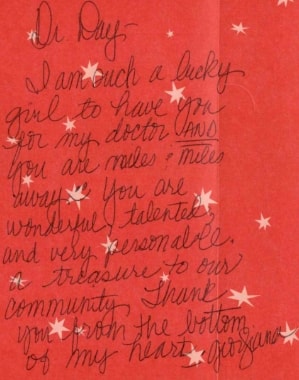 Dr. Day-
I am such a lucky
girl to have you
for my doctor AND
you are miles & miles
away. You are
wonderful, talented,
and very personable.
a treasure to our
community. Thank
you from the bottom
of my heart, georgiana